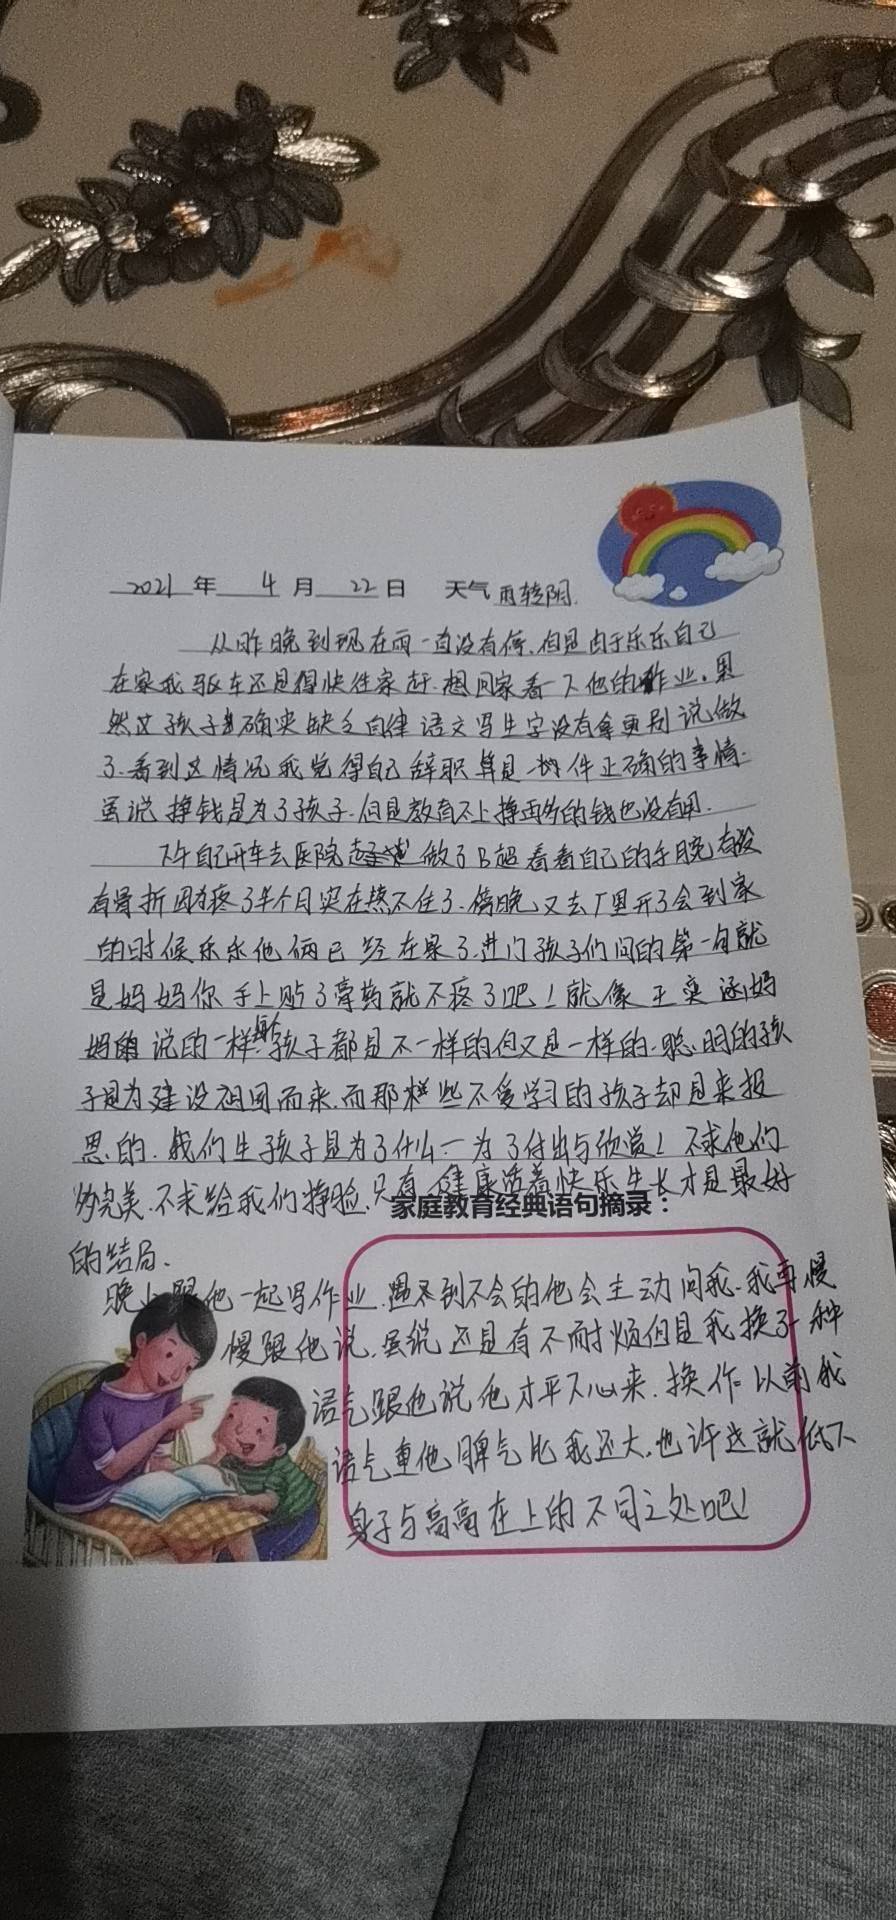 2021年 4月 22日 天气 雨转阴.
从昨晚到现在雨一直没有停.但是由于乐乐自己
在家我驱车还是得快往家赶.想回家看一下他的作业.果
然这孩子确实缺乏自律语文写生字没有拿更别说做
了.看到这情况我觉得自己辞职算是一件正确的事情.
虽说挣钱是为了孩子.但是教育不上挣再多的钱也没有用.
下午自己开车去医院做了B超看看自己的手腕有没
有骨折因为疼了半个月实在熬不住了.傍晚又去厂里开了会到家
的时候乐乐他俩已经在家了.进门孩子们问的第一句就
是妈妈你手上贴了膏药就不疼了吧！就像王奕涵妈
妈说的一样.每个孩子都是不一样的但又是一样的.聪明的孩
子是为建设祖国而来.而那些不爱学习的孩子却是来报
恩的.我们生孩子是为了什么—为了付出与欣赏！不求他们
多完美.不求给我们挣脸.只有健康活着快乐生长才是最好
家庭教育经典语句摘录：
的结局.
晚上跟他一起写作业.遇到不会的他会主动问我.我再慢
慢跟他说.虽说还是有不耐烦但是我换了一种
语气跟他说他才平下心来.换作以前我
语气重他脾气比我还大.也许这就低下
身子与高高在上的不同之处吧！